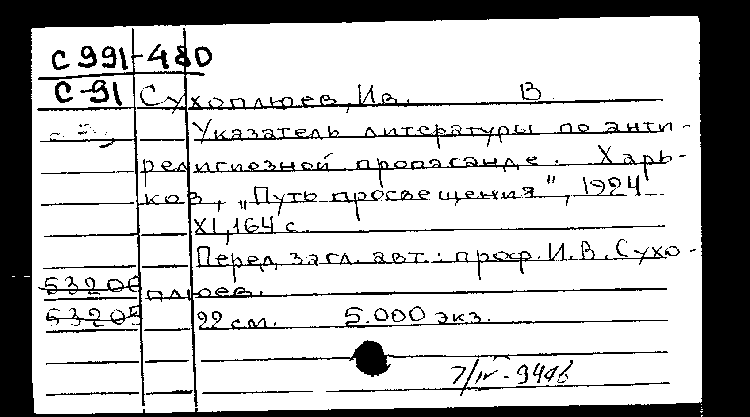 С 991-480
С-91 Сухоплюев, Ив. В
Указатель литературы по анти-
религиозной пропаганде. Харь-
ков, „Путь просвещения", 1924
XI, 164 с.
Перед загл. авт.: проф. И. В. Сухо-
53206 плюев.
53205 22 см. 5.000 экз.
7/IV-944б